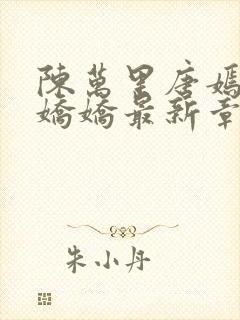 陳萬里唐嫣
嬌嬌最新章
朱小丹